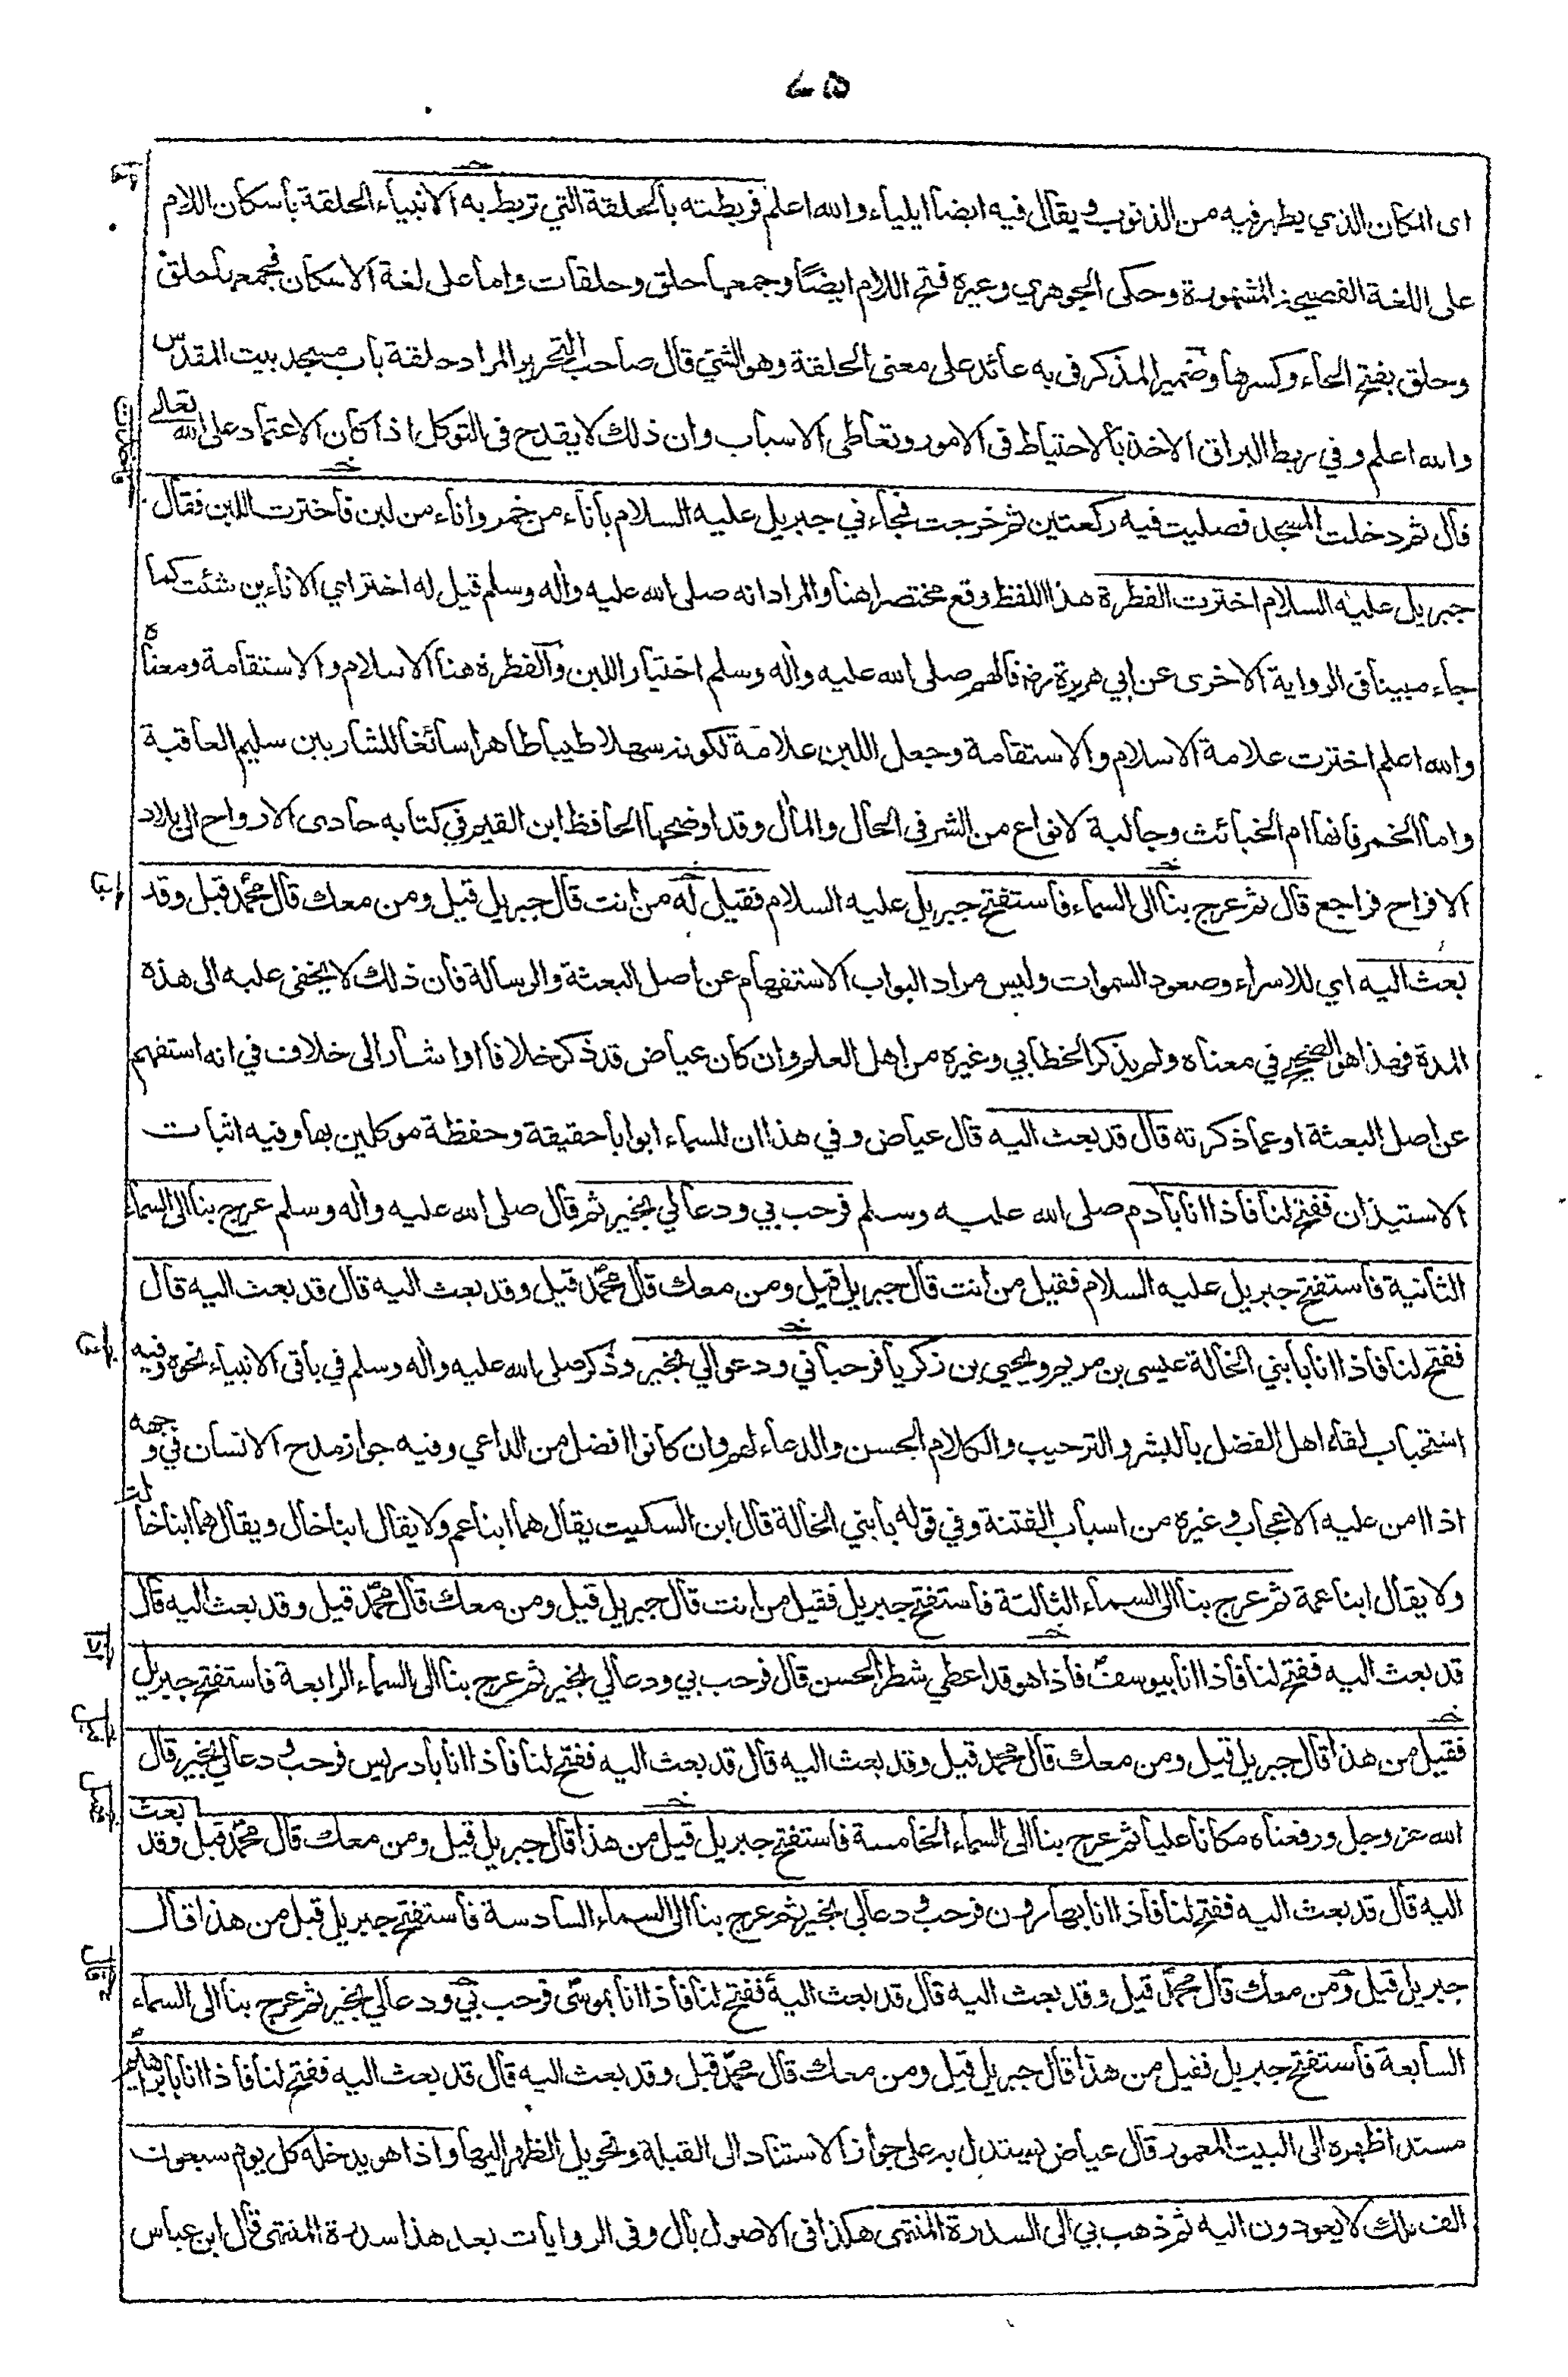 ٧٥
اى المكان الذي يطهر فيه من الذنوب ويقال فيه ايضا ايلياء والله اعلم فربطته بالحلقة التي تربط به الانبياء الحلقة باسكان اللام
على اللغة الفصيحة المشهورة وحكى الجوهري وغيره فتح اللام ايضًا وجمعها حلق وحلقات واما على لغة الاسكان فجمعها حلق
وحلق بفتح الحاء وكسرها وضمير المذكر فى به عائد على معنى الحلقة وهو الشيّ قال صاحب التحرير المراد حلقة باب مسجد بيت المقدس
والله اعلم وفي ربط البراق الاخذ بالاحتياط فى الامور وتعاطى الاسباب وان ذلك لا يقدح فى التوكل اذا كان الاعتماد على الله تعالى
قال ثم دخلت المسجد فصليت فيه ركعتين ثم خرجت فجاءني جبريل عليه السلام باناء من خمر واناء من لبن فاخترت اللبن فقال
جبريل عليه السلام اخترت الفطرة هذا اللفظ وقع مختصرا هنا والمراد انه صلى الله عليه واله وسلم قيل له اختر اي الاناءين شئت كما
جاء مبينا فى الرواية الاخرى عن ابي هريرة رض فالهم صلى الله عليه واله وسلم اختيار اللبن والفطرة هنا الاسلام والاستقامة ومعناه
والله اعلم اخترت علامة الاسلام والاستقامة وجعل اللبن علامة لكونه سهلا طيبا طاهرا سائغا للشاربين سليم العاقبة
واما الخمر فانها ام الخبائث وجالبة لانواع من الشر فى الحال والمآل وقد اوضحها الحافظ ابن القيم في كتابه حادى الارواح الى بلاد
الافراح فراجع قال ثم عرج بنا الى السماء فاستفتح جبريل عليه السلام فقيل له من انت قال جبريل قيل ومن معك قال محمد قيل وقد
بعث اليه اي للاسراء وصعود السموات وليس مراد البواب الاستفهام عن اصل البعثة والرسالة فان ذلك لا يخفى عليه الى هذه
المدة فهذا هو الصحيح في معناه ولم يذكر الخطابي وغيره من اهل العلم وان كان عياض قد ذكر خلافا او اشار الى خلاف في انه استفهم
عن اصل البعثة او عما ذكرته قال قد بعث اليه قال عياض وفي هذا ان للسماء ابوابا حقيقة وحفظة موكلين بها وفيه اثبات
الاستيذان ففتح لنا فاذا انا بآدم صلى الله عليه وسلم فرحب بي ودعا لي بخير ثم قال صلى الله عليه واله وسلم عرج بنا الى السماء
الثانية فاستفتح جبريل عليه السلام فقيل من انت قال جبريل قيل ومن معك قال محمد قيل وقد بعث اليه قال قد بعث اليه قال
ففتح لنا فاذا انا بابني الخالة عيسى بن مريم ويحيى بن زكريا فرحبا ني ودعوا لي بخير وذكر صلى الله عليه واله وسلم في باقى الانبياء نحوه وفيه
استحباب لقاء اهل الفضل بالبشر والترحيب والكلام الحسن والدعاء لهم وان كانوا افضل من الداعي وفيه جواز مدح الانسان في وجهه
اذا امن عليه الاعجاب وغيره من اسباب الفتنة وفي قوله بابني الخالة قال ابن السكيت يقال هما ابنا عم ولا يقال ابنا خال ويقال هما ابنا خالة
ولا يقال ابنا عمة ثم عرج بنا الى السماء الثالثة فاستفتح جبريل فقيل من انت قال جبريل قيل ومن معك قال محمد قيل وقد بعث اليه قال
قد بعث اليه ففتح لنا فاذا انا بيوسف فاذا هو قد اعطي شطر الحسن قال فرحب بي ودعا لي بخير ثم عرج بنا الى السماء الرابعة فاستفتح جبريل
فقيل من هذا قال جبريل قيل ومن معك قال محمد قيل وقد بعث اليه قال قد بعث اليه ففتح لنا فاذا انا بادريس فرحب ودعا لي بخير قال
الله عز وجل ورفعناه مكانا عليا ثم عرج بنا الى السماء الخامسة فاستفتح جبريل قيل من هذا قال جبريل قيل ومن معك قال محمد قيل وقد بعث
اليه قال قد بعث اليه ففتح لنا فاذا انا بهارون فرحب ودعا لي بخير ثم عرج بنا الى السماء السادسة فاستفتح جبريل قيل من هذا قال
جبريل قيل ومن معك قال محمد قيل وقد بعث اليه قال قد بعث اليه ففتح لنا فاذا انا بموسى فرحب بي ودعا لي بخير ثم عرج بنا الى السماء
السابعة فاستفتح جبريل فقيل من هذا قال جبريل قيل ومن معك قال محمد قيل وقد بعث اليه قال قد بعث اليه ففتح لنا فاذا انا بابراهيم
مسندا ظهره الى البيت المعمور قال عياض يستدل به على جواز الاستناد الى القبلة وتحويل الظهر اليها واذا هو يدخله كل يوم سبعون
الف ملك لا يعودون اليه ثم ذهب بي الى السدرة المنتهى هكذا فى الاصول بال وفى الروايات بعد هذا سدرة المنتهى قال ابن عباس